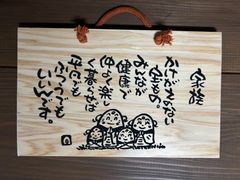 家族
かけがえのない
宝もの。
みんなが
健康で
仲よく楽し
く暮らせれば
平凡でも
ふつうでも
いいんです。